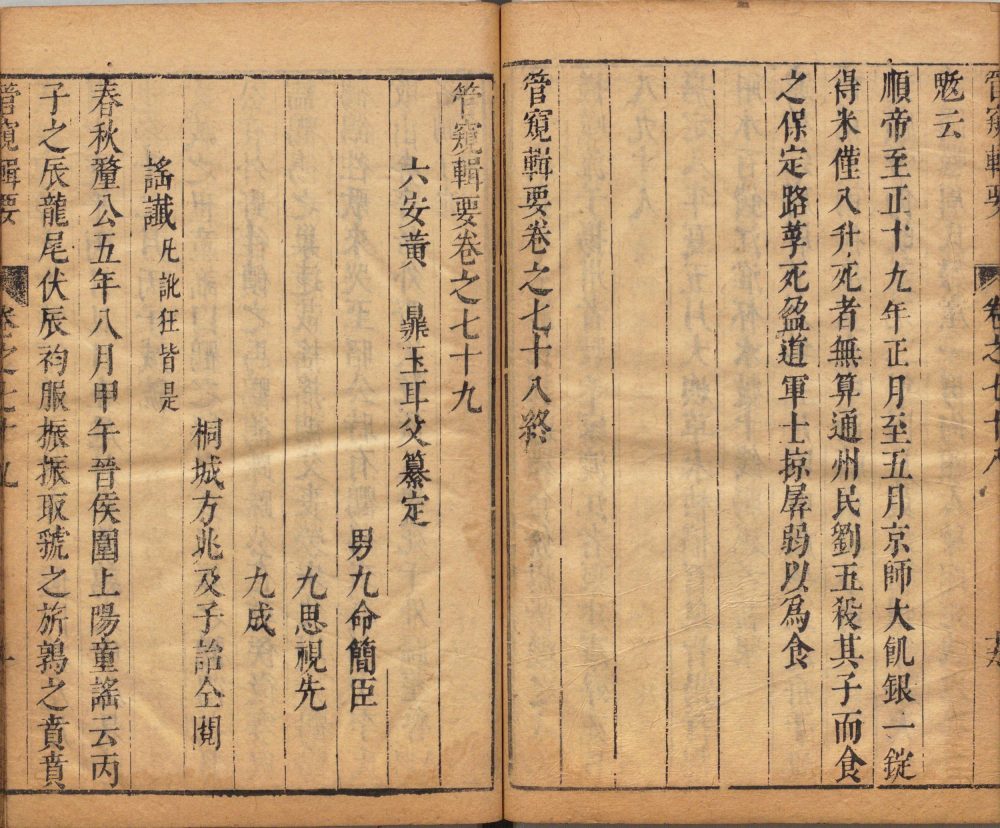 管窺輯要 卷之七十八
慝云
順帝至正十九年正月至五月京師大飢銀一錠
得米僅入升死者無算通州民劉五殺其子而食
之保定路莩死盈道軍士掠孱弱以為食
管窺輯要卷之七十八終
管窺輯要卷之七十九
六安黃 鼎玉耳父纂定
男九命簡臣
九思視先
九成
桐城方兆及子詒仝閱
謠讖凡訛狂皆是
春秋釐公五年八月甲午晉侯圍上陽童謠云丙
子之辰龍尾伏辰袀服振振取虢之旂鶉之賁賁
管窺輯要 卷之七十九 一